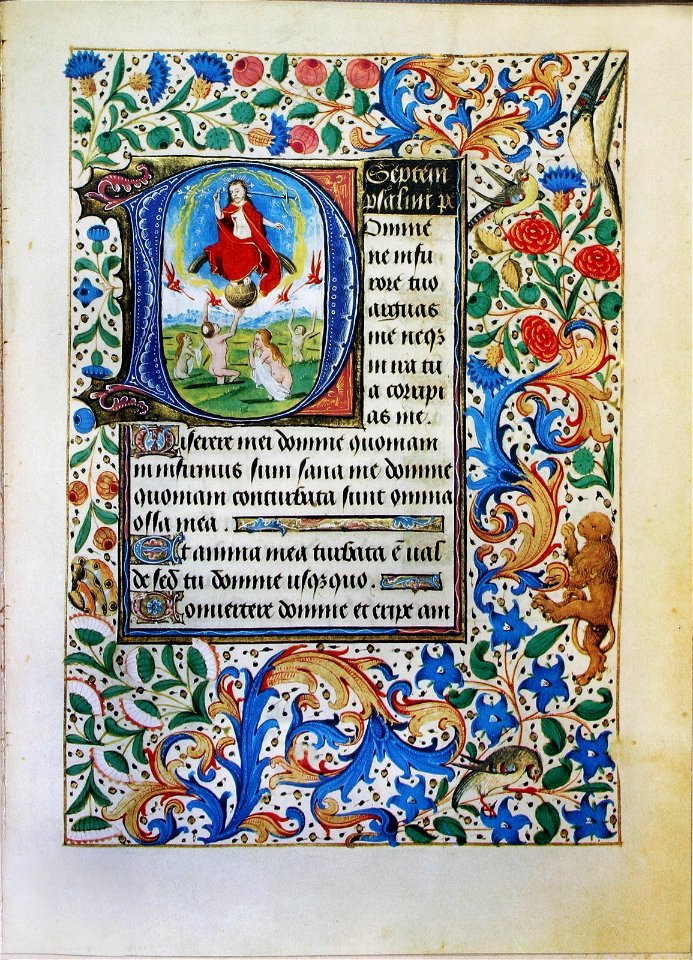 Septem
psalmi p
Domine
ne in fu
rore tuo
arguas
me neqꝫ
in ira tu
a corripi
as me.
Miserere mei domine quoniam
infirmus sum sana me domine
quoniam conturbata sunt omnia
ossa mea.
Et anima mea turbata ē ual
de sed tu domine usqꝫquo.
Conuertere domine et eripe am